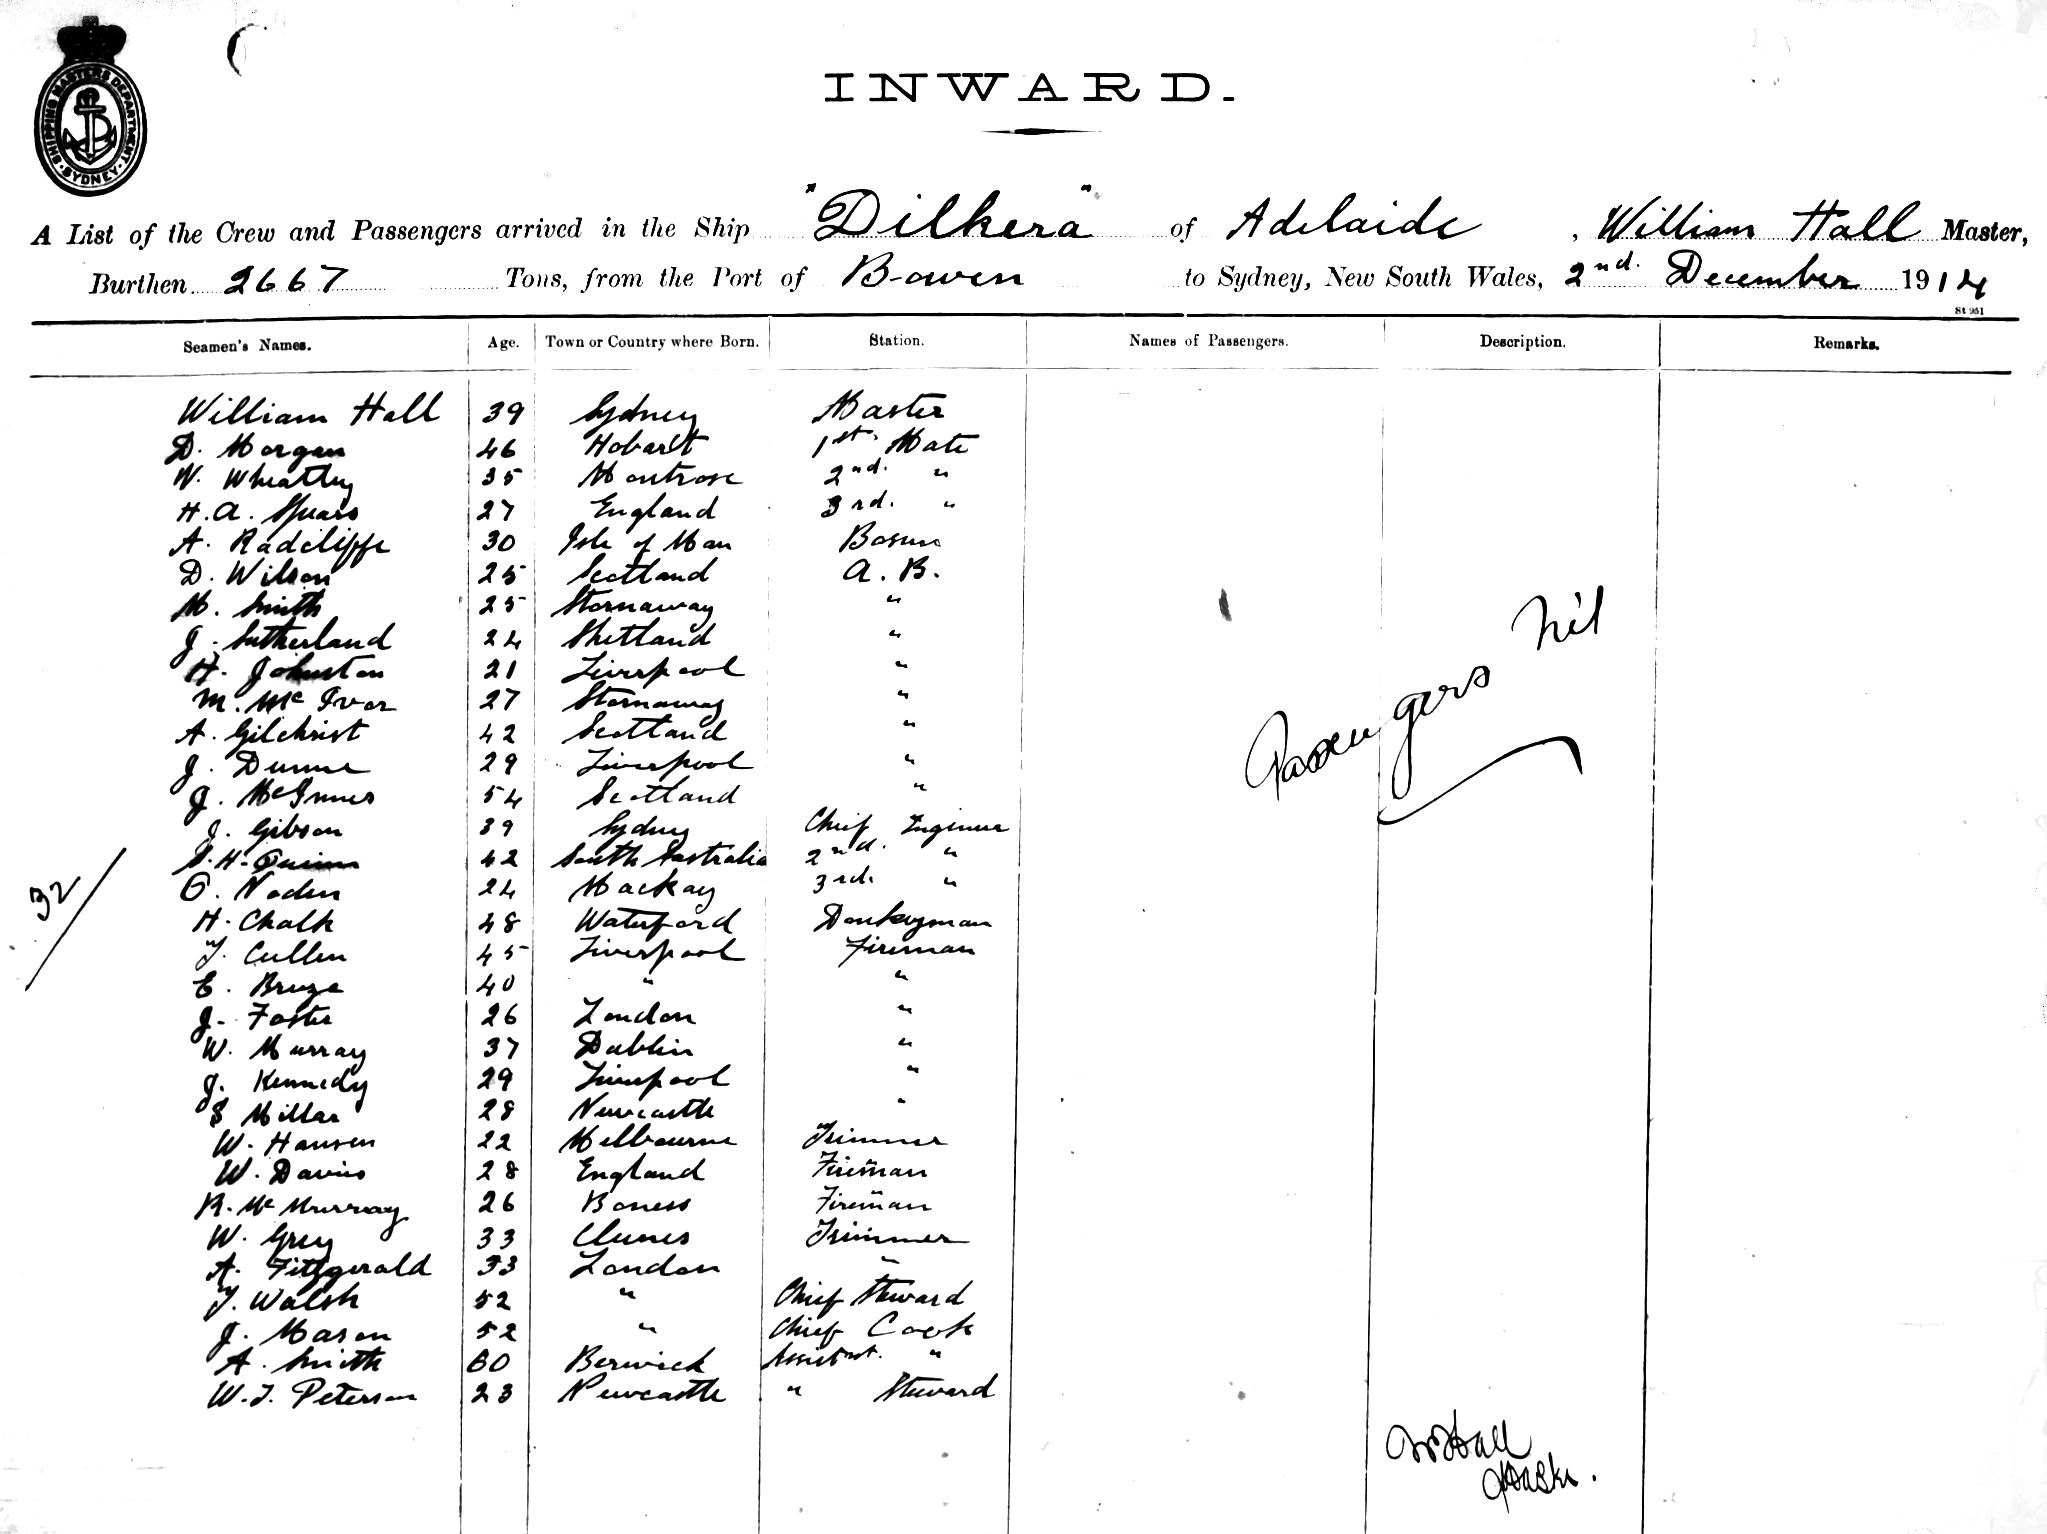 SHIPPING MASTERS DEPARTMENT · SYDNEY ·
INWARD.
A List of the Crew and Passengers arrived in the Ship "Dilkera" of Adelaide, William Hall Master,
Burthen 2667 Tons, from the Port of Bowen to Sydney, New South Wales, 2nd. December 1914
St 951
Seamen's Names. Age. Town or Country where Born. Station. Names of Passengers. Description. Remarks.
William Hall 39 Sydney Master
D. Morgan 46 Hobart 1st. Mate
W. Wheatley 35 Montrose 2nd. "
H.A. Spears 27 England 3rd. "
A. Radcliffe 30 Isle of Man Bosun
D. Wilson 25 Scotland A.B.
M. Smith 25 Stornaway "
J. Sutherland 24 Shetland "
H. Johnston 21 Liverpool "
M. McIvor 27 Stornaway "
A. Gilchrist 42 Scotland "
J. Dunne 29 Liverpool "
J. McInnes 54 Scotland "
J. Gibson 39 Sydney Chief Engineer
H. Quinn 42 South Australia 2nd. "
O. Noden 24 Mackay 3rd. "
H. Chalk 48 Waterford Donkeyman
T. Cullen 45 Liverpool Fireman
E. Bruze 40 " "
J. Foster 26 London "
W. Murray 37 Dublin "
J. Kennedy 29 Liverpool "
S Millar 28 Newcastle "
W. Hansen 22 Melbourne Trimmer
W. Davies 28 England Fireman
R. McMurray 26 Boness Fireman
W. Grey 33 Clunes Trimmer
A. Fitzgerald 33 London "
T. Walsh 52 " Chief Steward
J. Mason 52 " Chief Cook
A. Smith 60 Berwick Assistant. "
W.J. Peterson 23 Newcastle " Steward
32
Passengers Nil
W Hall
Master.